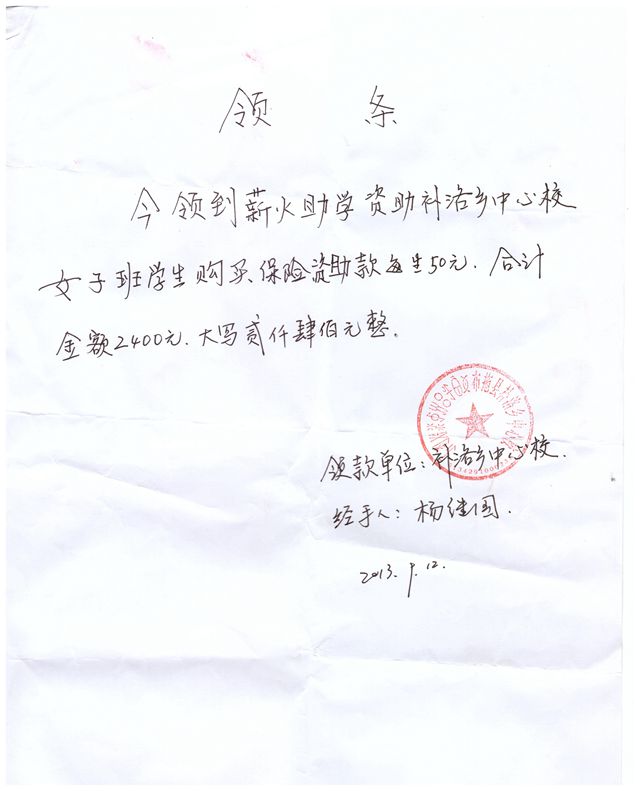 领 条
今领到薪火助学资助补洛乡中心校
女子班学生购买保险资助款每生50元.合计
金额2400元.大写贰仟肆佰元整。
领款单位:补洛乡中心校.
经手人:杨继国.
2013.9.12.